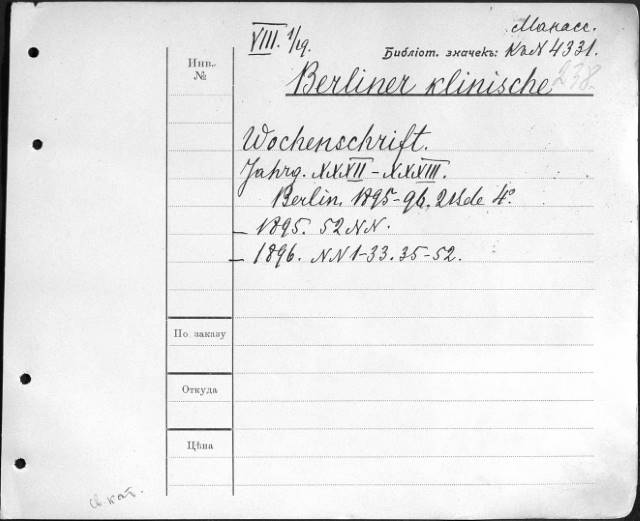 Манасс.
VIII. 1/19.
Библіот. значекъ: К. N 4331.
238.
Инв. №
Berliner klinische
Wochenschrift.
Jahrg. XXXII-XXXIII.
Berlin. 1895-96. 2 Bde 4°.
- 1895. 52 NN.
- 1896. NN 1-33. 35-52.
По заказу
Откуда
Цѣна
кат.